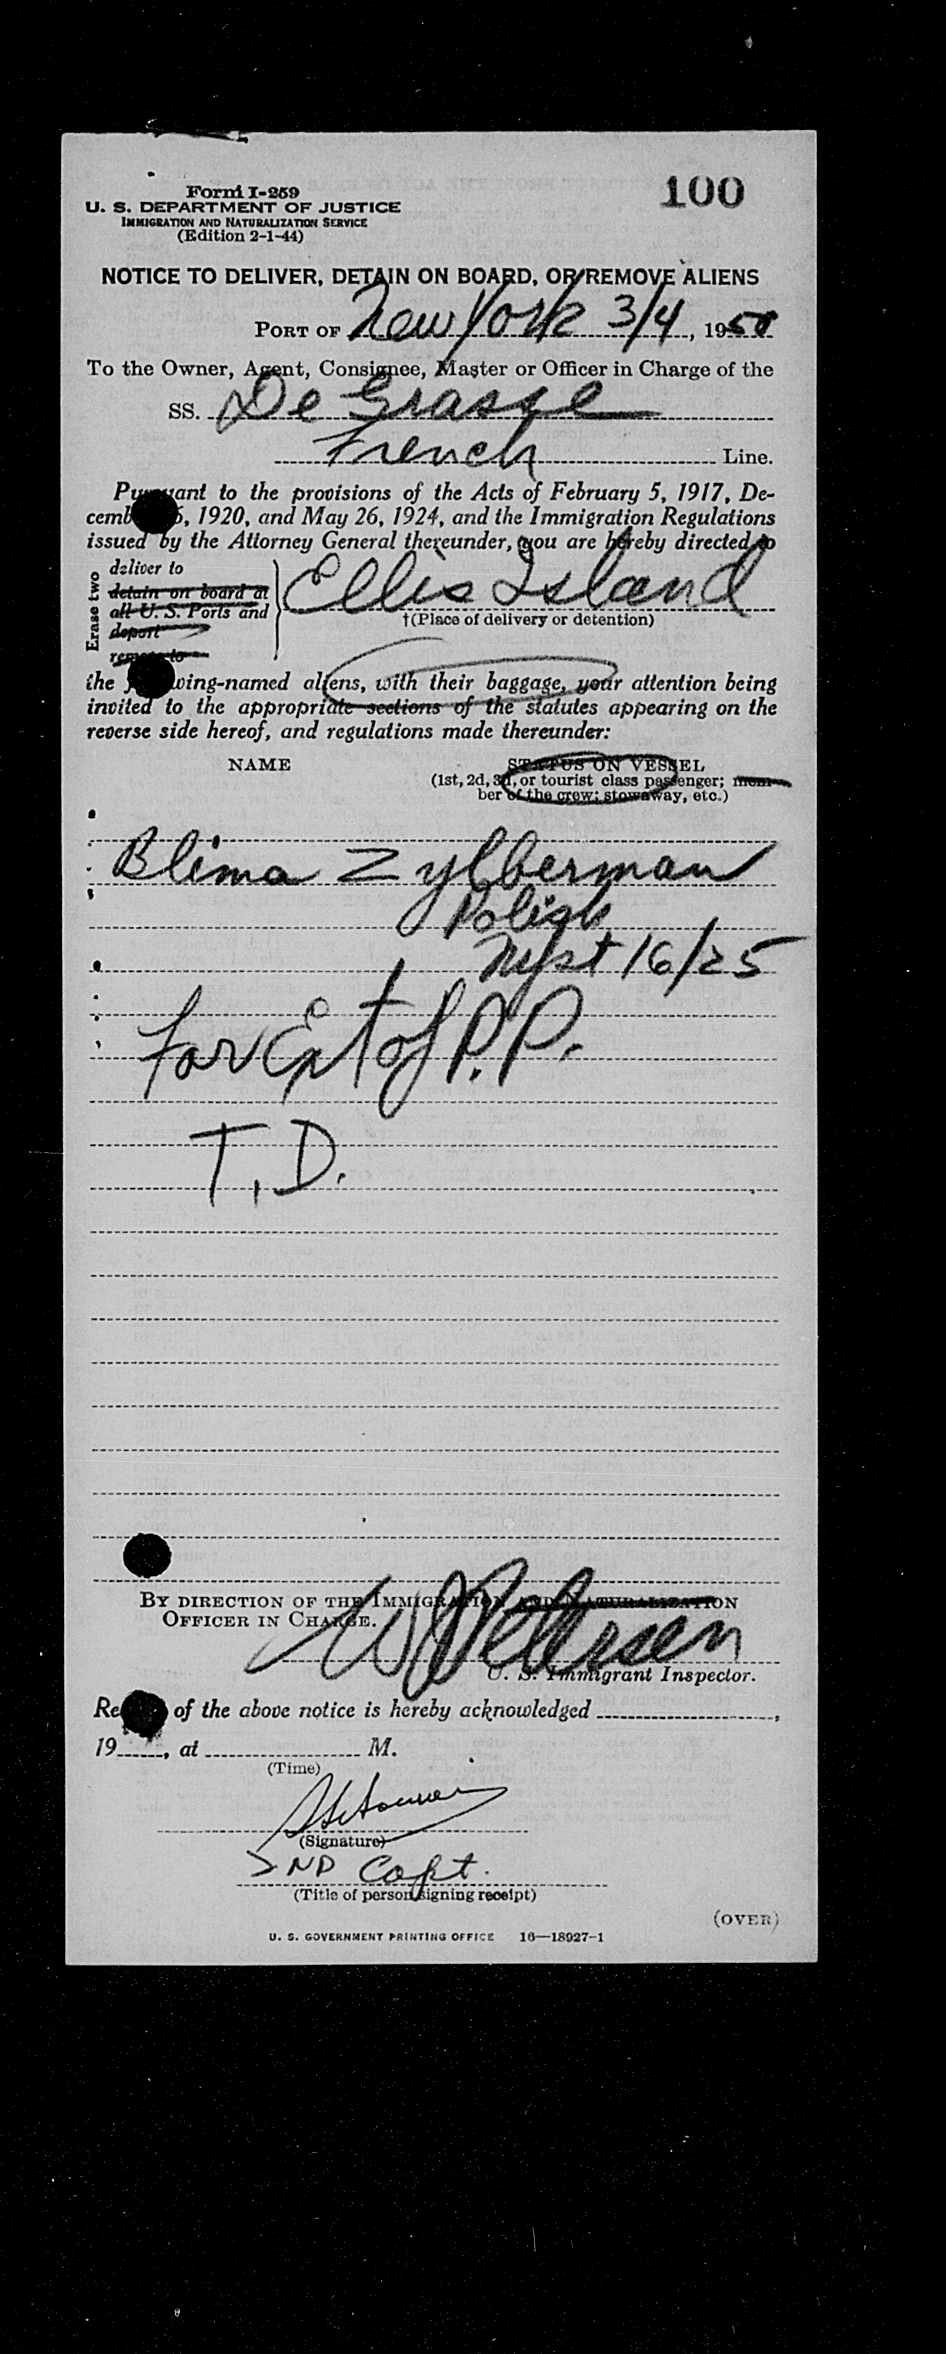 100
Form I-259
U. S. DEPARTMENT OF JUSTICE
IMMIGRATION AND NATURALIZATION SERVICE
(Edition 2-1-44)
NOTICE TO DELIVER, DETAIN ON BOARD, OR REMOVE ALIENS
PORT OF New York 3/4, 1950
To the Owner, Agent, Consignee, Master or Officer in Charge of the
SS. De Grasse
French Line.
Pursuant to the provisions of the Acts of February 5, 1917, De-
cember 26, 1920, and May 26, 1924, and the Immigration Regulations
issued by the Attorney General thereunder, you are hereby directed to
Erase two
deliver to
detain on board at
all U. S. Ports and
deport
remove to
Ellis Island
†(Place of delivery or detention)
the following-named aliens, with their baggage, your attention being
invited to the appropriate sections of the statutes appearing on the
reverse side hereof, and regulations made thereunder:
NAME STATUS ON VESSEL
(1st, 2d, 3d, or tourist class passenger; mem-
ber of the crew; stowaway, etc.)
Blima Zylberman
Polish
Myst 16/25
For Ext of P.P.
T.D.
BY DIRECTION OF THE IMMIGRATION AND NATURALIZATION
OFFICER IN CHARGE.
Petersen
U. S. Immigrant Inspector.
Receipt of the above notice is hereby acknowledged ,
19 , at M.
(Time)
(Signature)
2ND Capt.
(Title of person signing receipt)
(OVER)
U. S. GOVERNMENT PRINTING OFFICE 16—18927-1